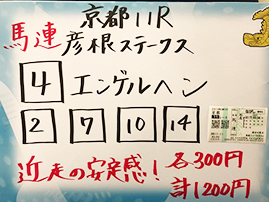 京都11R
馬連 彦根ステークス
4 エンゲルヘン
2 7 10 14
近走の安定感! 各300円
計1200円